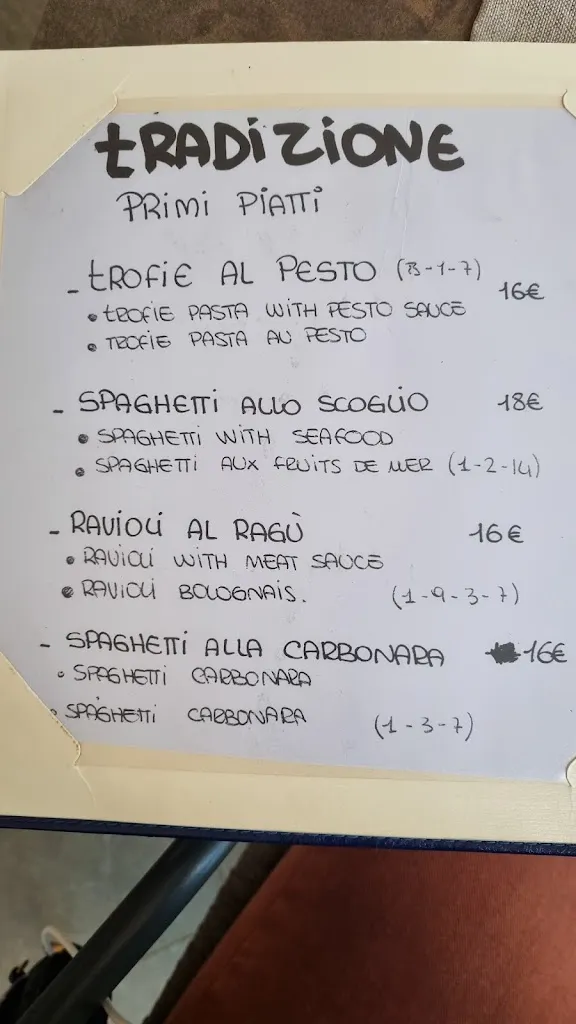 tRADiZiONE
PRiMi PiATTi
- tROFiE AL PESTO (8-1-7) 16€
• tROFiE PASTA WiTH PESTO SAUCE
• TROFiE PASTA AU PESTO
- SPAGHETTi ALLO SCOGLiO 18€
• SPAGHETTi WiTH SEAFOOD
• SPAGHETTi AUX FRUiTS DE MER (1-2-14)
- RAViOLi AL RAGÙ 16€
• RAViOLi WiTH MEAT SAUCE
• RAViOLi BOLOGNAiS. (1-9-3-7)
- SPAGHETTi ALLA CARBONARA 16€
• SPAGHETTi CARBONARA
• SPAGHETTi CARBONARA (1-3-7)